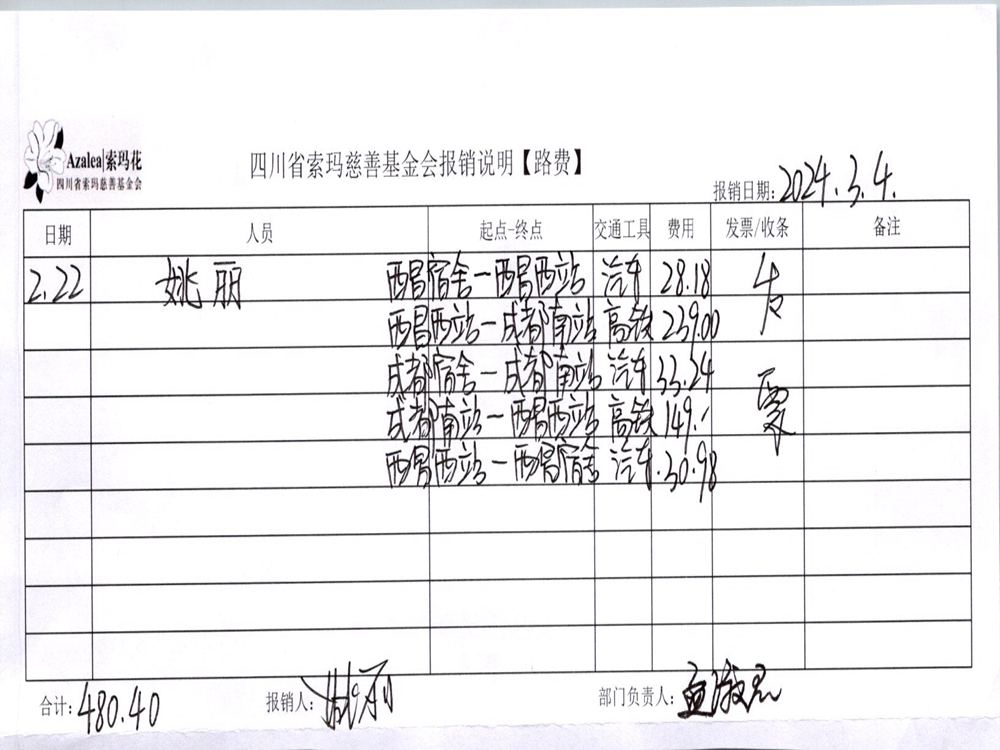 Azalea 索玛花
四川省索玛慈善基金会
四川省索玛慈善基金会报销说明【路费】
报销日期: 2024.3.4.
日期 人员 起点-终点 交通工具 费用 发票/收条 备注
2.22 姚丽 西昌宿舍—西昌西站 汽车 28.18
西昌西站—成都南站 高铁 239.00
成都宿舍—成都南站 汽车 33.24
成都南站—西昌西站 高铁 149.-
西昌西站—西昌宿舍 汽车 30.98
发
票
合计: 480.40 报销人: 姚丽 部门负责人: